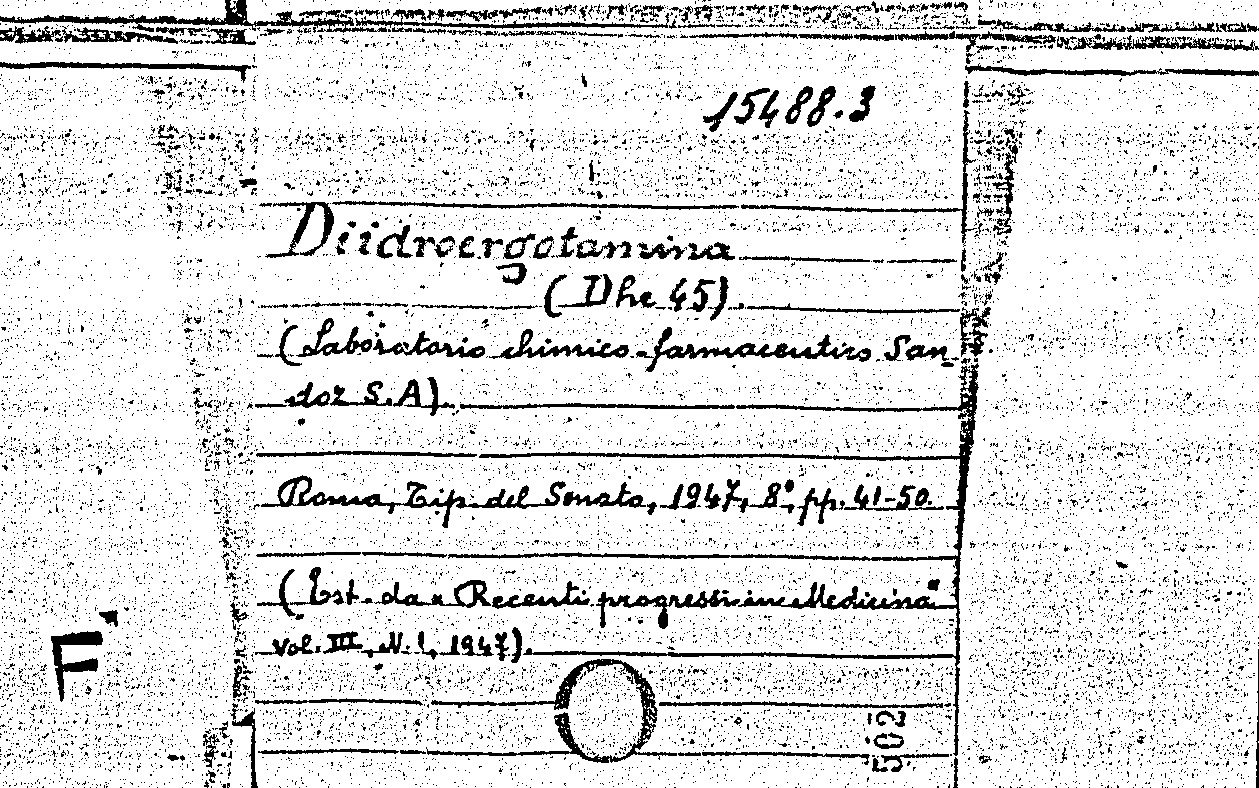 15488.3
Diidroergotamina
(Dhe 45).
(Laboratorio chimico-farmaceutico San-
doz S.A).
Roma, Tip. del Senato, 1947, 8°, pp. 41-50.
(Est. da « Recenti progressi in Medicina"
vol. III, N. 1, 1947).
F
502